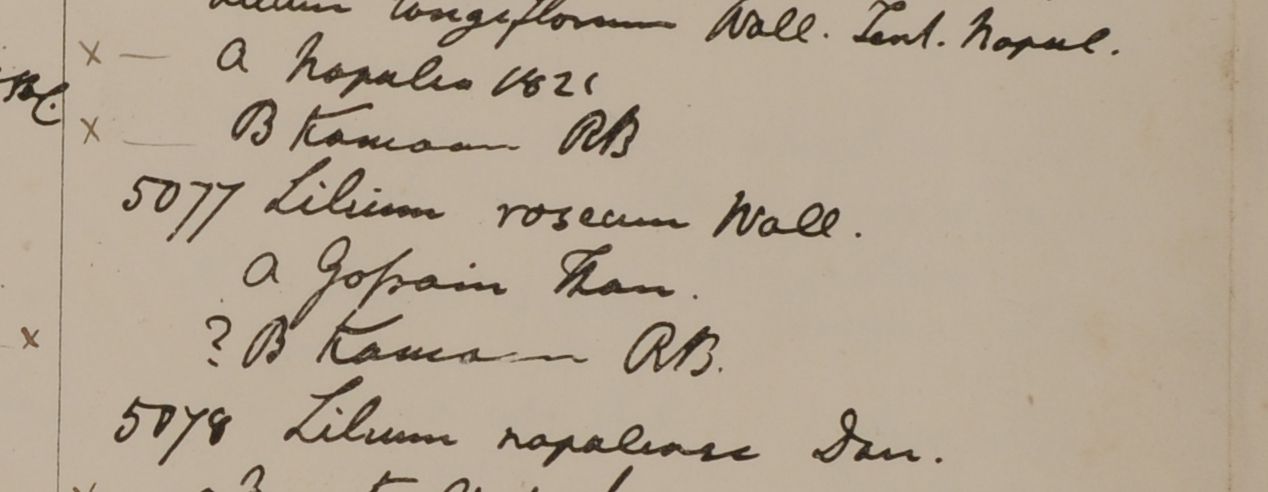 Lilium longiflorum Wall. Tent. Napul.
x — A Napalia 1821
x — B Kamaon RB
5077 Lilium roseum Wall.
A Gosain Than.
x ? B Kamaon RB.
5078 Lilium napalense Don.